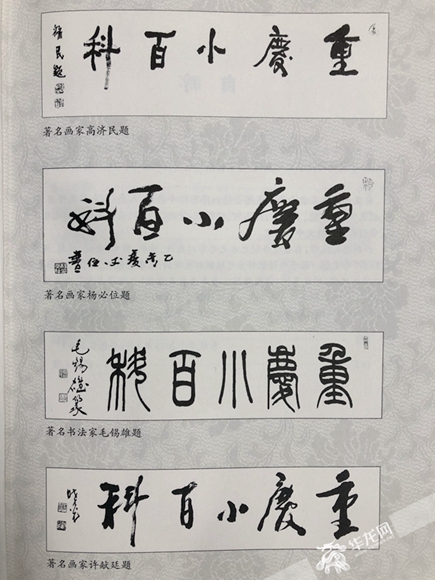 重慶小百科
濟民題
著名画家高济民题
重慶小百科
乙未夏必位書
著名画家杨必位题
重慶小百科
毛锡雄篆
著名书法家毛锡雄题
重慶小百科
著名画家许献廷题
华龙网